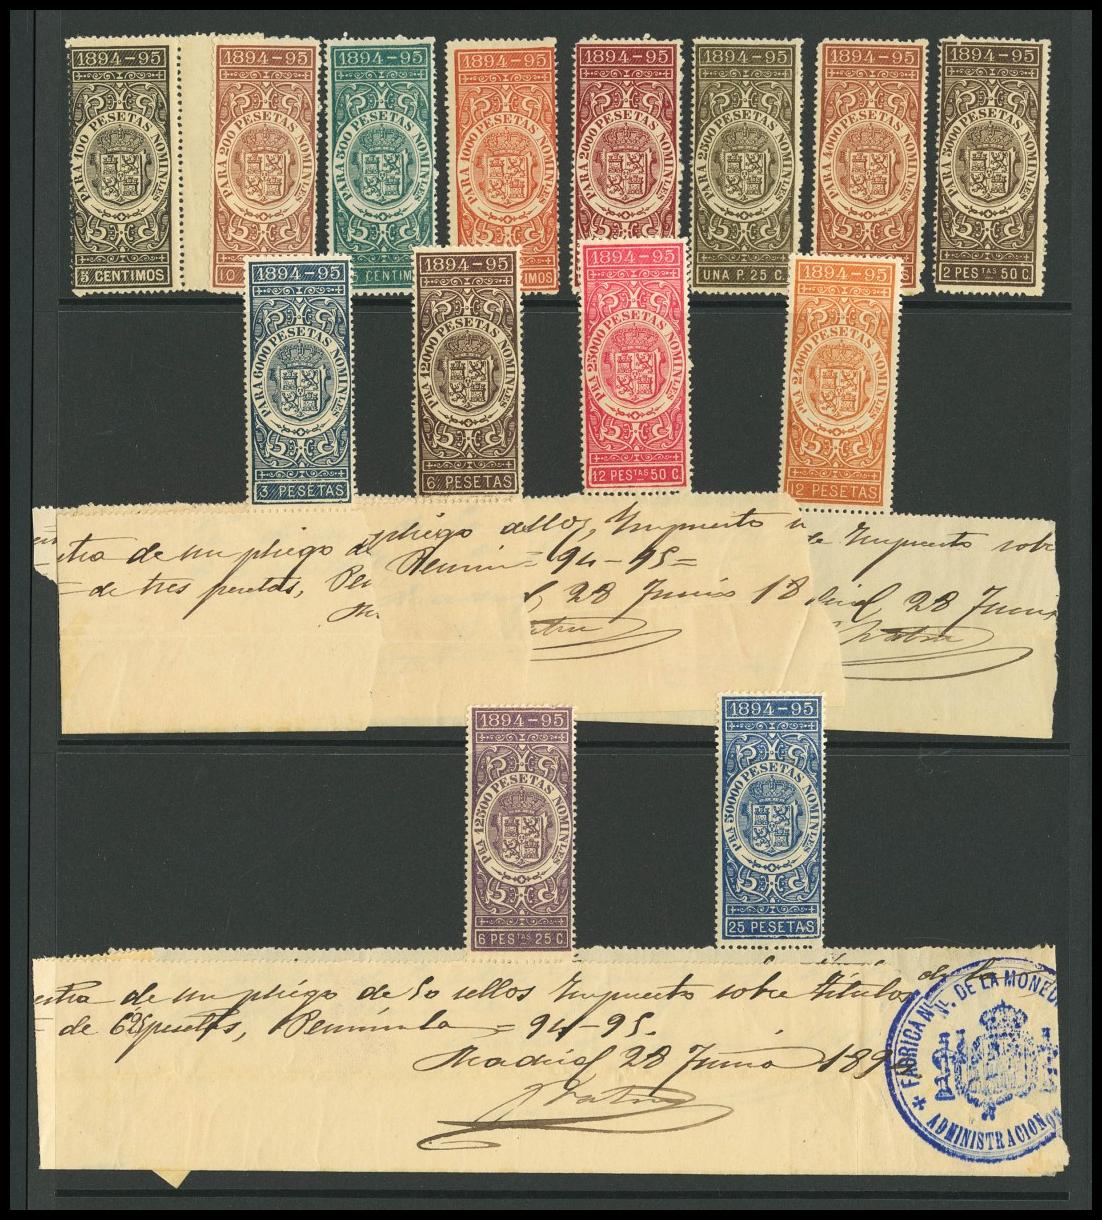 1894-95
PARA 100 PESETAS NOMINLES
5 CENTIMOS
1894-95
PARA 200 PESETAS NOMINLES
10
1894-95
PARA 500 PESETAS NOMINLES
CENTIMOS
1894-95
PARA 1000 PESETAS NOMINLES
1894-95
PARA 2000 PESETAS NOMINLES
1894-95
PARA 2500 PESETAS NOMINLES
UNA P. 25 C.
1894-95
PARA 4000 PESETAS NOMINLES
1894-95
PARA 5000 PESETAS NOMINLES
2 PESTAS 50 C.
1894-95
PARA 6000 PESETAS NOMINLES
3 PESETAS
1894-95
PRA 12000 PESETAS NOMINLES
6 PESETAS
1894-95
PRA 25000 PESETAS NOMINLES
12 PESTAS 50 C.
1894-95
PRA 24000 PESETAS NOMINLES
12 PESETAS
de un pliego
de tres pesetas,
pliego de 50, Impuesto
94-95=
28 Junio 18
de Impuesto sobre
28 Junio
1894-95
PRA 12500 PESETAS NOMINLES
6 PESTAS 25 C.
1894-95
PRA 50000 PESETAS NOMINLES
25 PESETAS
de un pliego de 50 sellos Impuesto sobre títulos de la
= de 6'25 pesetas, Península = 94-95.
Madrid 28 Junio 189
FABRICA NNAL DE LA MONEDA
ADMINISTRACION